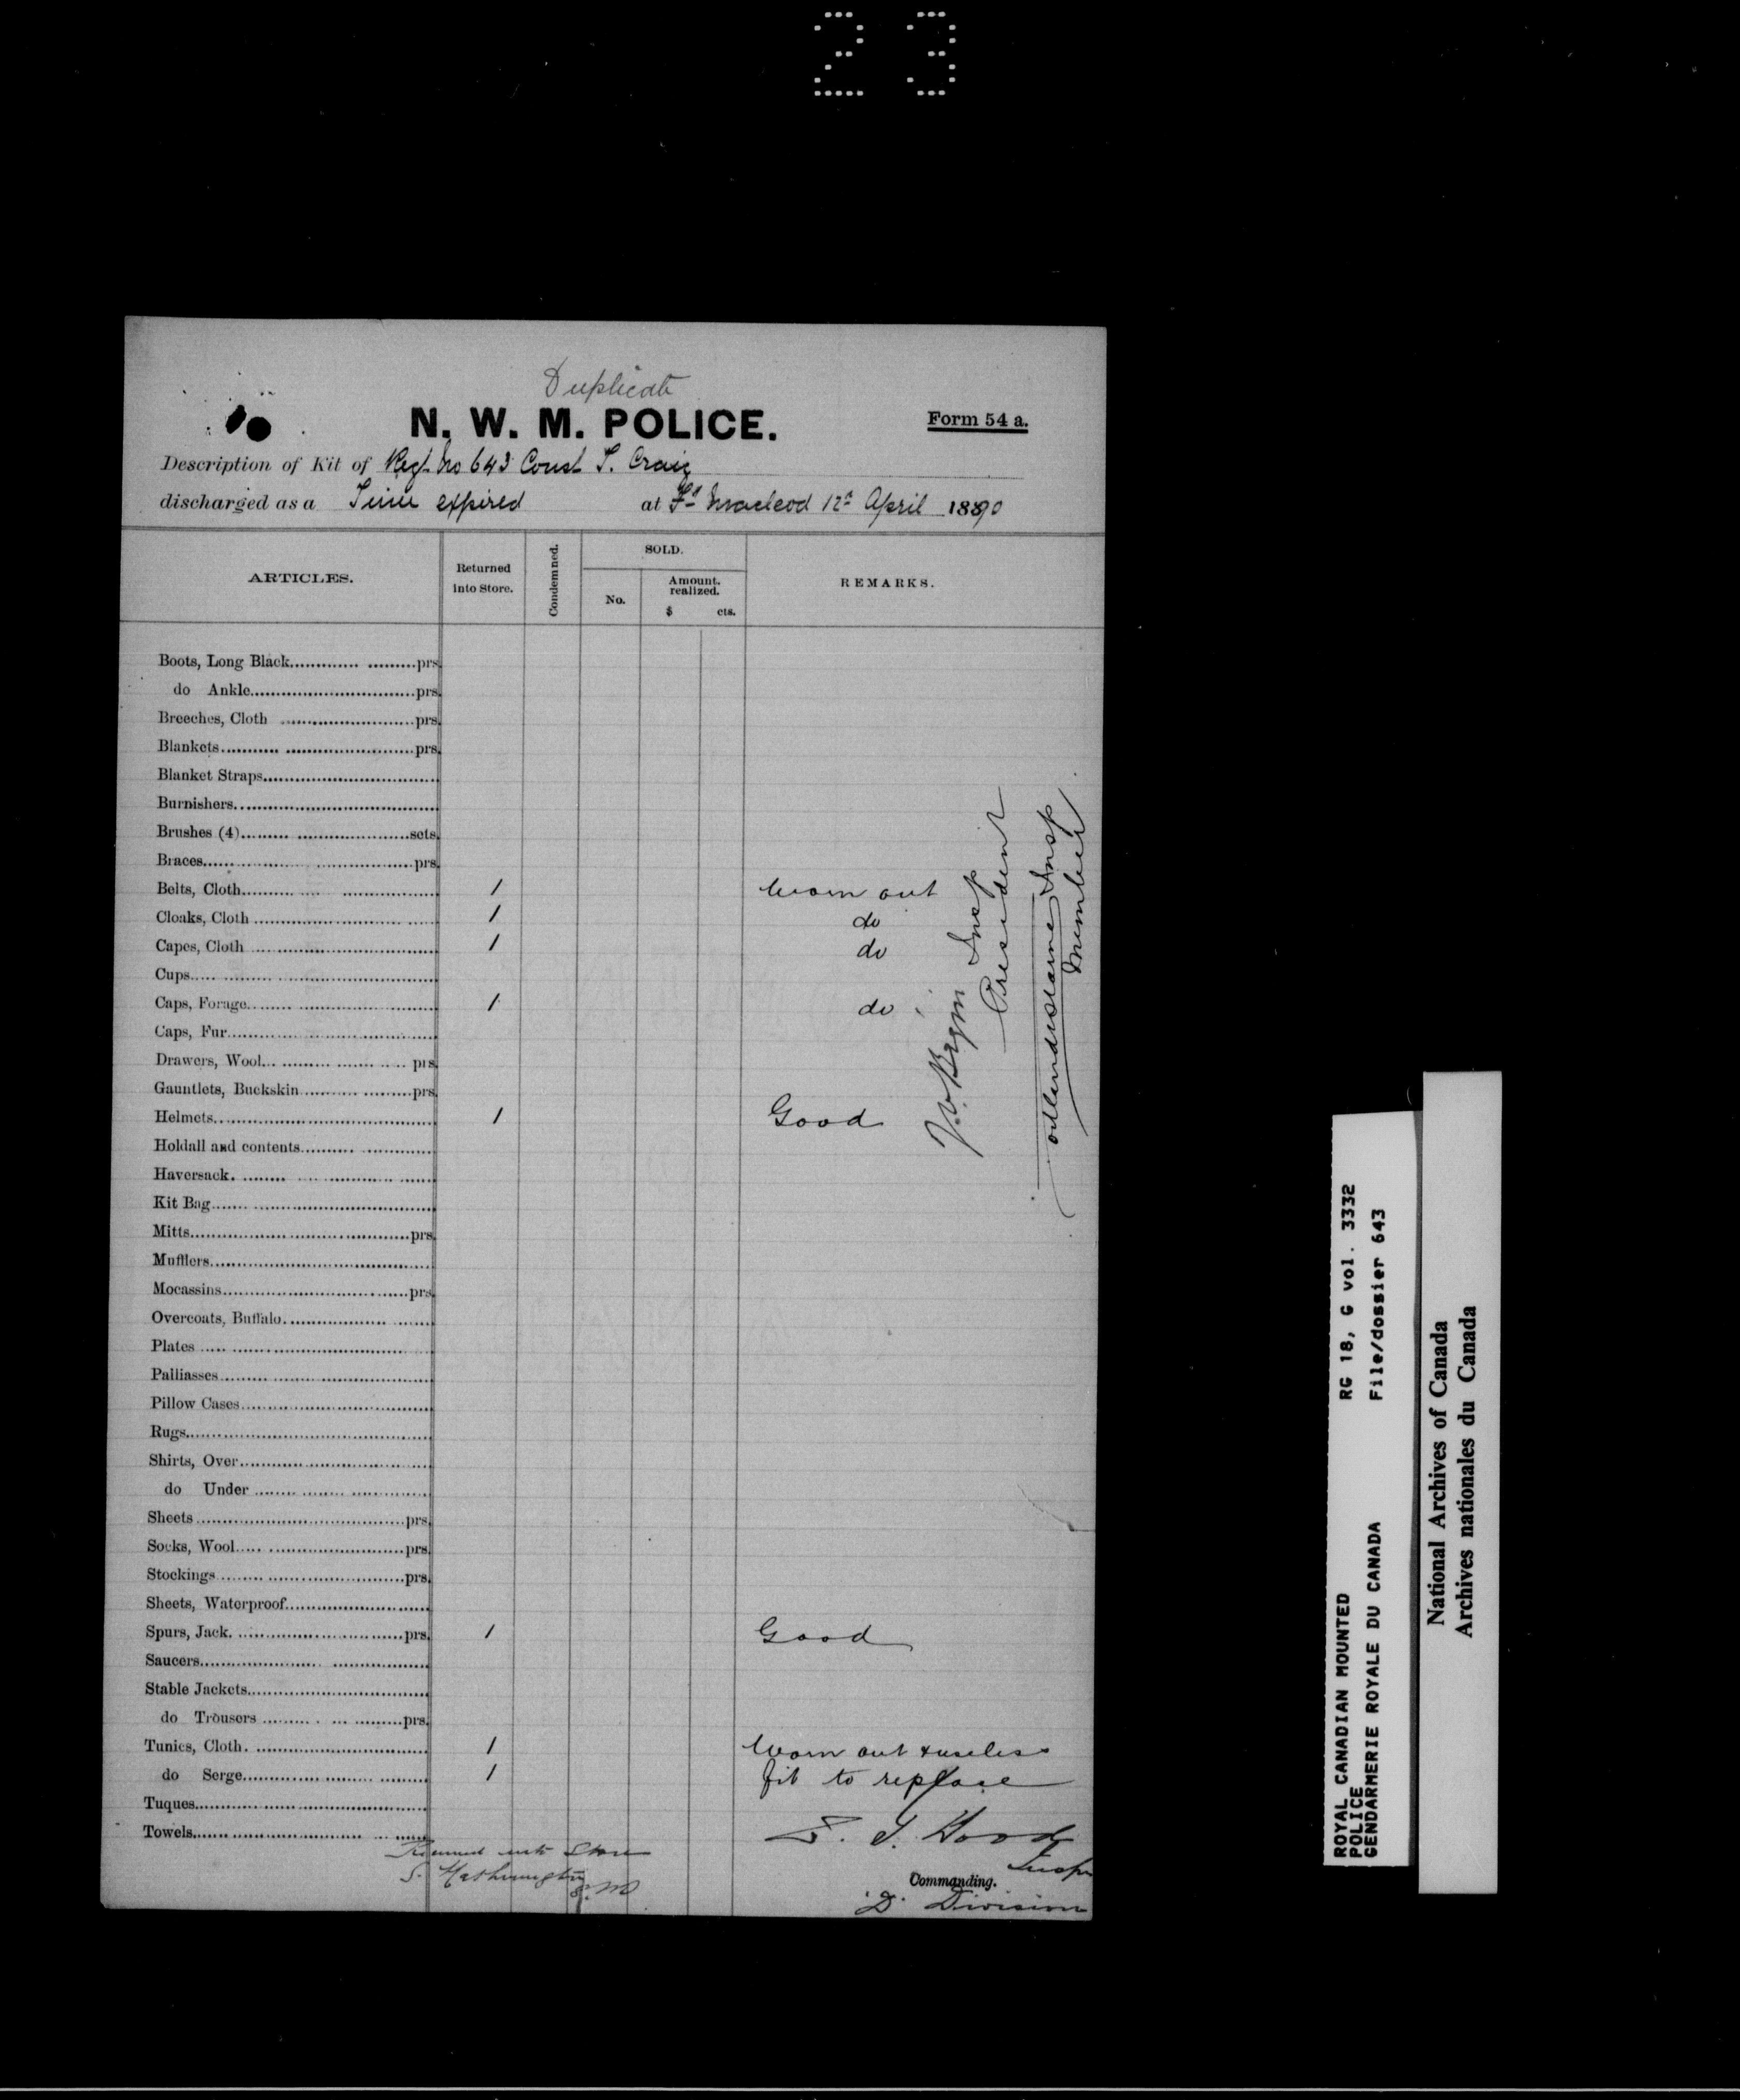 23
Duplicate
N. W. M. POLICE.
Form 54 a.
Description of Kit of Regt No 643 Const T. Craig
discharged as a Time expired at Ft Macleod 12th April 1890
ARTICLES.
Returned into Store.
Condemned.
SOLD.
No.
Amount. realized.
$ cts.
REMARKS.
Boots, Long Black prs.
do Ankle prs.
Breeches, Cloth prs.
Blankets prs.
Blanket Straps
Burnishers
Brushes (4) sets.
Braces prs.
Belts, Cloth 1 Worn out
Cloaks, Cloth 1 do
Capes, Cloth 1 do
Cups
Caps, Forage 1 do
Caps, Fur
Drawers, Wool prs.
Gauntlets, Buckskin prs.
Helmets 1 Good
Holdall and contents
Haversack
Kit Bag
Mitts prs.
Mufflers
Mocassins prs.
Overcoats, Buffalo
Plates
Palliasses
Pillow Cases
Rugs
Shirts, Over
do Under
Sheets prs.
Socks, Wool prs.
Stockings prs.
Sheets, Waterproof
Spurs, Jack prs. 1 Good
Saucers
Stable Jackets
do Trousers prs.
Tunics, Cloth 1 Worn out & useless
do Serge 1 fit to replace
Tuques
Towels
Insp
President
Insp
Member
into Store
S.
S.M
Insp
Commanding.
"D" Division
ROYAL CANADIAN MOUNTED
POLICE
GENDARMERIE ROYALE DU CANADA
RG 18, G vol. 3332
File/dossier 643
National Archives of Canada
Archives nationales du Canada